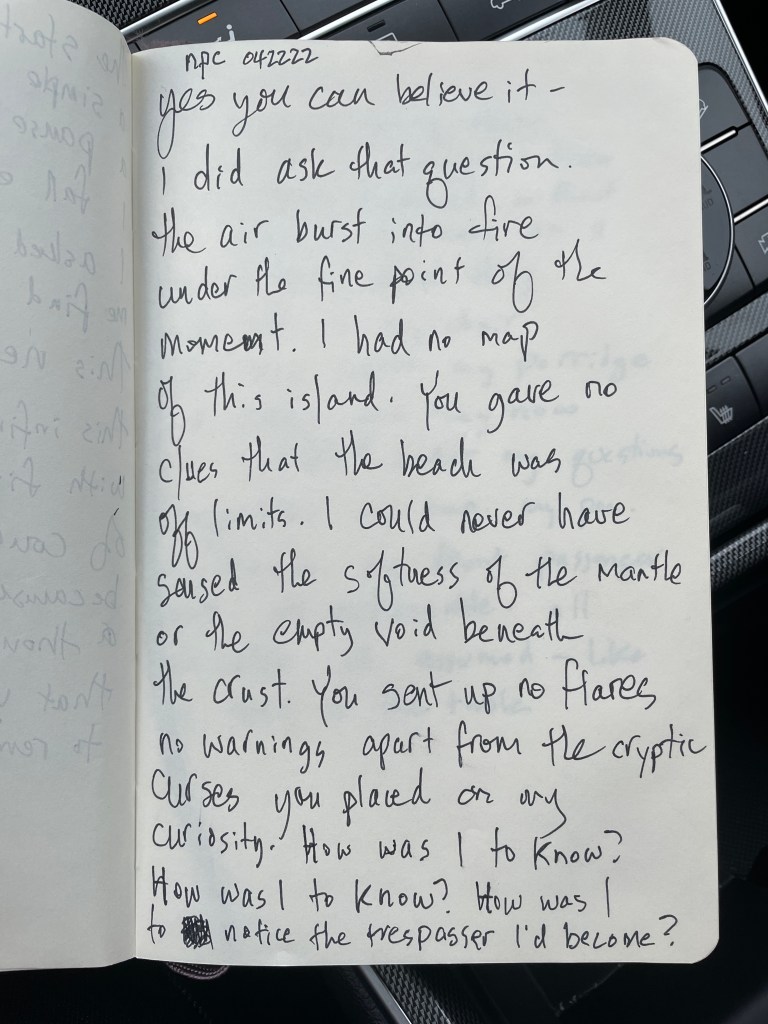 npc 042222
yes you can believe it –
I did ask that question.
the air burst into fire
under the fine point of the
moment. I had no map
of this island. You gave no
clues that the beach was
off limits. I could never have
sensed the softness of the mantle
or the empty void beneath
the crust. You sent up no flares
no warnings apart from the cryptic
curses you placed on my
curiosity. How was I to know?
How was I to know? How was I
to notice the trespasser I'd become?